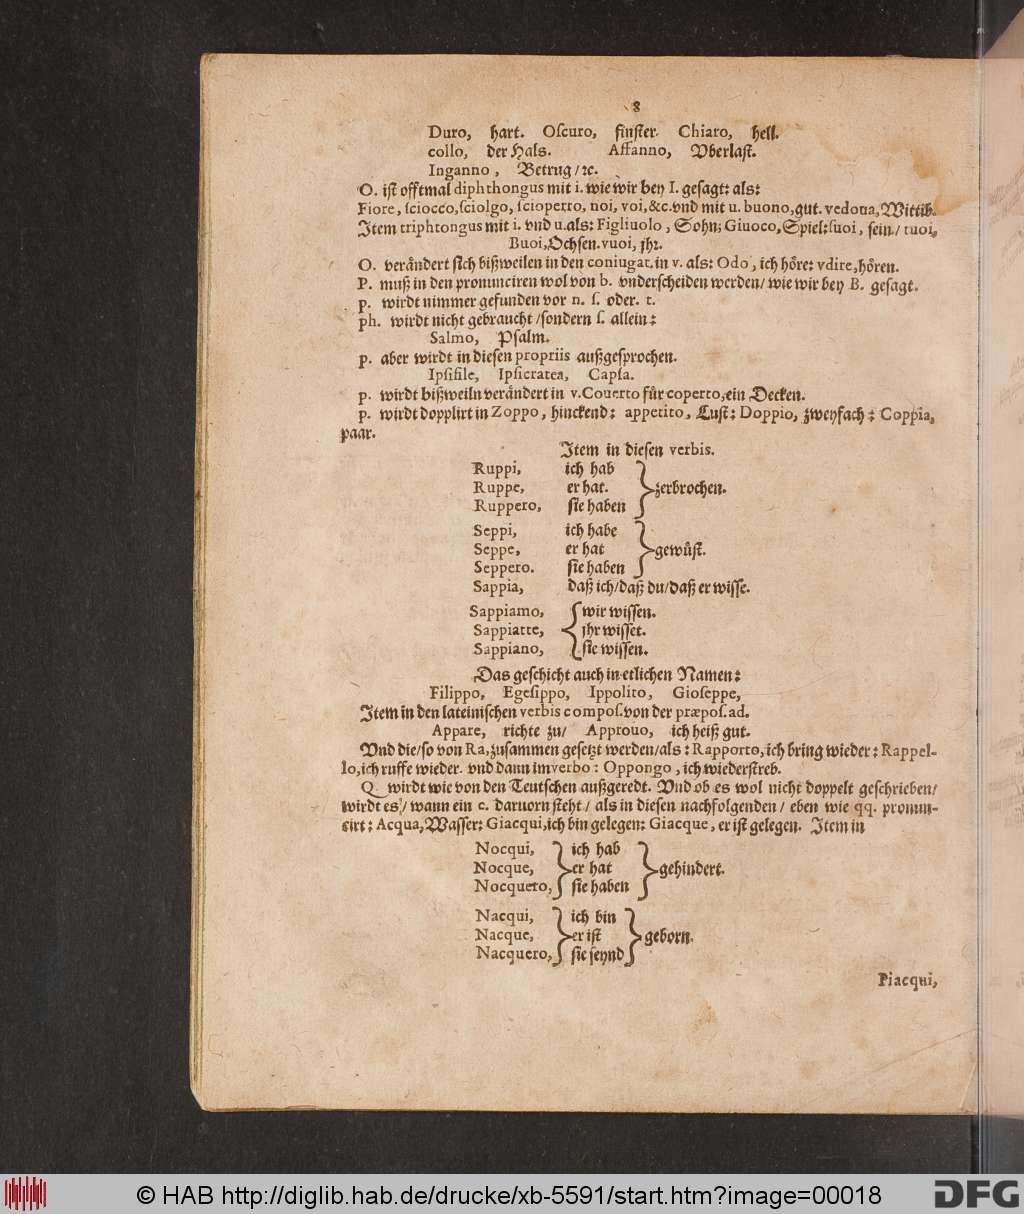 8
Duro, hart. Oſcuro, finſter. Chiaro, hell.
collo, der Hals. Affanno, Vberlaſt.
Inganno, Betrug / ꝛc.
O. iſt offtmal diphthongus mit i. wie wir bey I. geſagt: als:
Fiore, ſciocco, ſciolgo, ſcioperto, noi, voi, &c. vnd mit u. buono, gut. vedoua, Wittib.
Item triphtongus mit i. vnd u. als: Figliuolo, Sohn; Giuoco, Spiel: ſuoi, ſein / tuoi,
Buoi, Ochſen. vuoi, jhr.
O. verändert ſich bißweilen in den coniugat. in v. als: Odo, ich höre: vdire, hören.
P. muß in den pronunciren wol von b. vnderſcheiden werden / wie wir bey B. geſagt.
p. wirdt nimmer gefunden vor n. ſ. oder. t.
ph. wirdt nicht gebraucht / ſondern f. allein:
Salmo, Pſalm.
p. aber wirdt in dieſen propriis außgeſprochen.
Ipſifile, Ipſicratea, Capſa.
p. wirdt bißweiln verändert in v. Couerto für coperto, ein Decken.
p. wirdt dopplirt in Zoppo, hinckend: appetito, Luſt: Doppio, zweyfach: Coppia,
paar.
Item in dieſen verbis.
Ruppi, ich hab
Ruppe, er hat. zerbrochen.
Ruppero, ſie haben
Seppi, ich habe
Seppe, er hat gewüſt.
Seppero. ſie haben
Sappia, daß ich / daß du / daß er wiſſe.
Sappiamo, wir wiſſen.
Sappiatte, jhr wiſſet.
Sappiano, ſie wiſſen.
Das geſchicht auch in etlichen Namen:
Filippo, Egeſippo, Ippolito, Gioſeppe,
Item in den lateiniſchen verbis compoſ. von der præpoſ. ad.
Appare, richte zu / Approuo, ich heiß gut.
Vnd die / ſo von Ra, zuſammen geſetzt werden / als: Rapporto, ich bring wieder: Rappel-
lo, ich ruffe wieder. vnd dann im verbo: Oppongo, ich wiederſtreb.
Q wirdt wie von den Teutſchen außgeredt. Vnd ob es wol nicht doppelt geſchrieben /
wirdt es / wann ein c. daruorn ſteht / als in dieſen nachfolgenden / eben wie qq. pronun-
cirt: Acqua, Waſſer: Giacqui, ich bin gelegen: Giacque, er iſt gelegen. Item in
Nocqui, ich hab
Nocque, er hat gehindert.
Nocquero, ſie haben
Nacqui, ich bin
Nacque, er iſt geborn.
Nacquero, ſie ſeynd
Piacqui,
© HAB http://diglib.hab.de/drucke/xb-5591/start.htm?image=00018
DFG